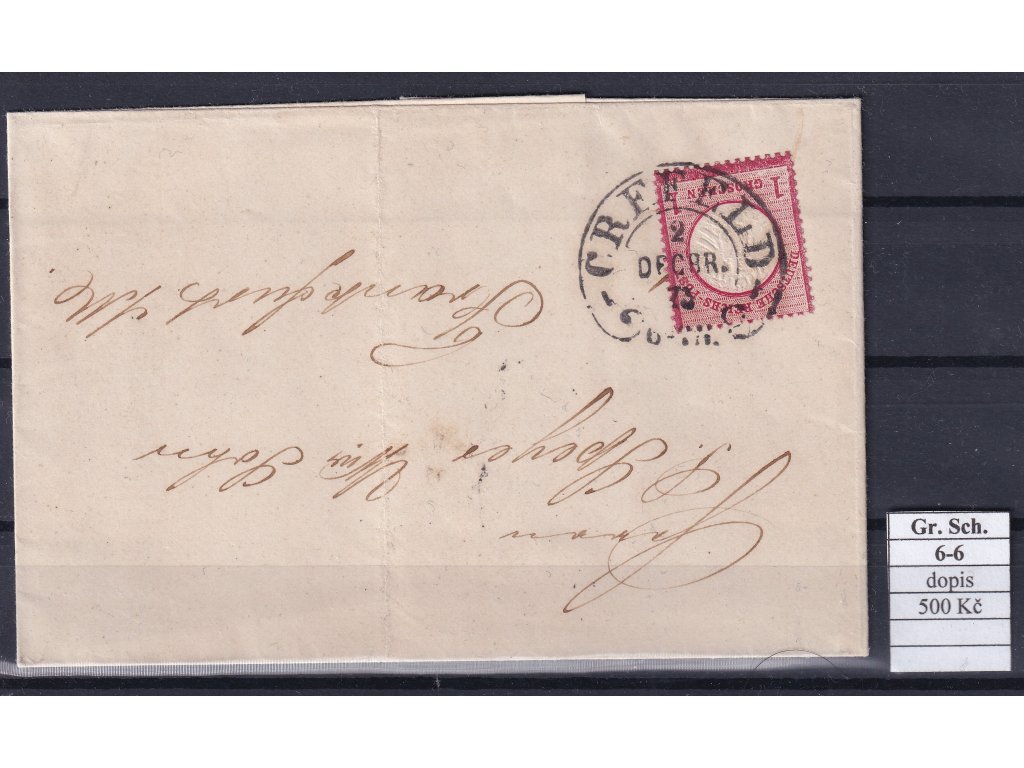 CREFELD
2
DECBR.
73
1 GROSCHEN 1
DEUTSCHE REICHS-POST
Herrn
Speyer
Frankfurt
Gr. Sch.
6-6
dopis
500 Kč